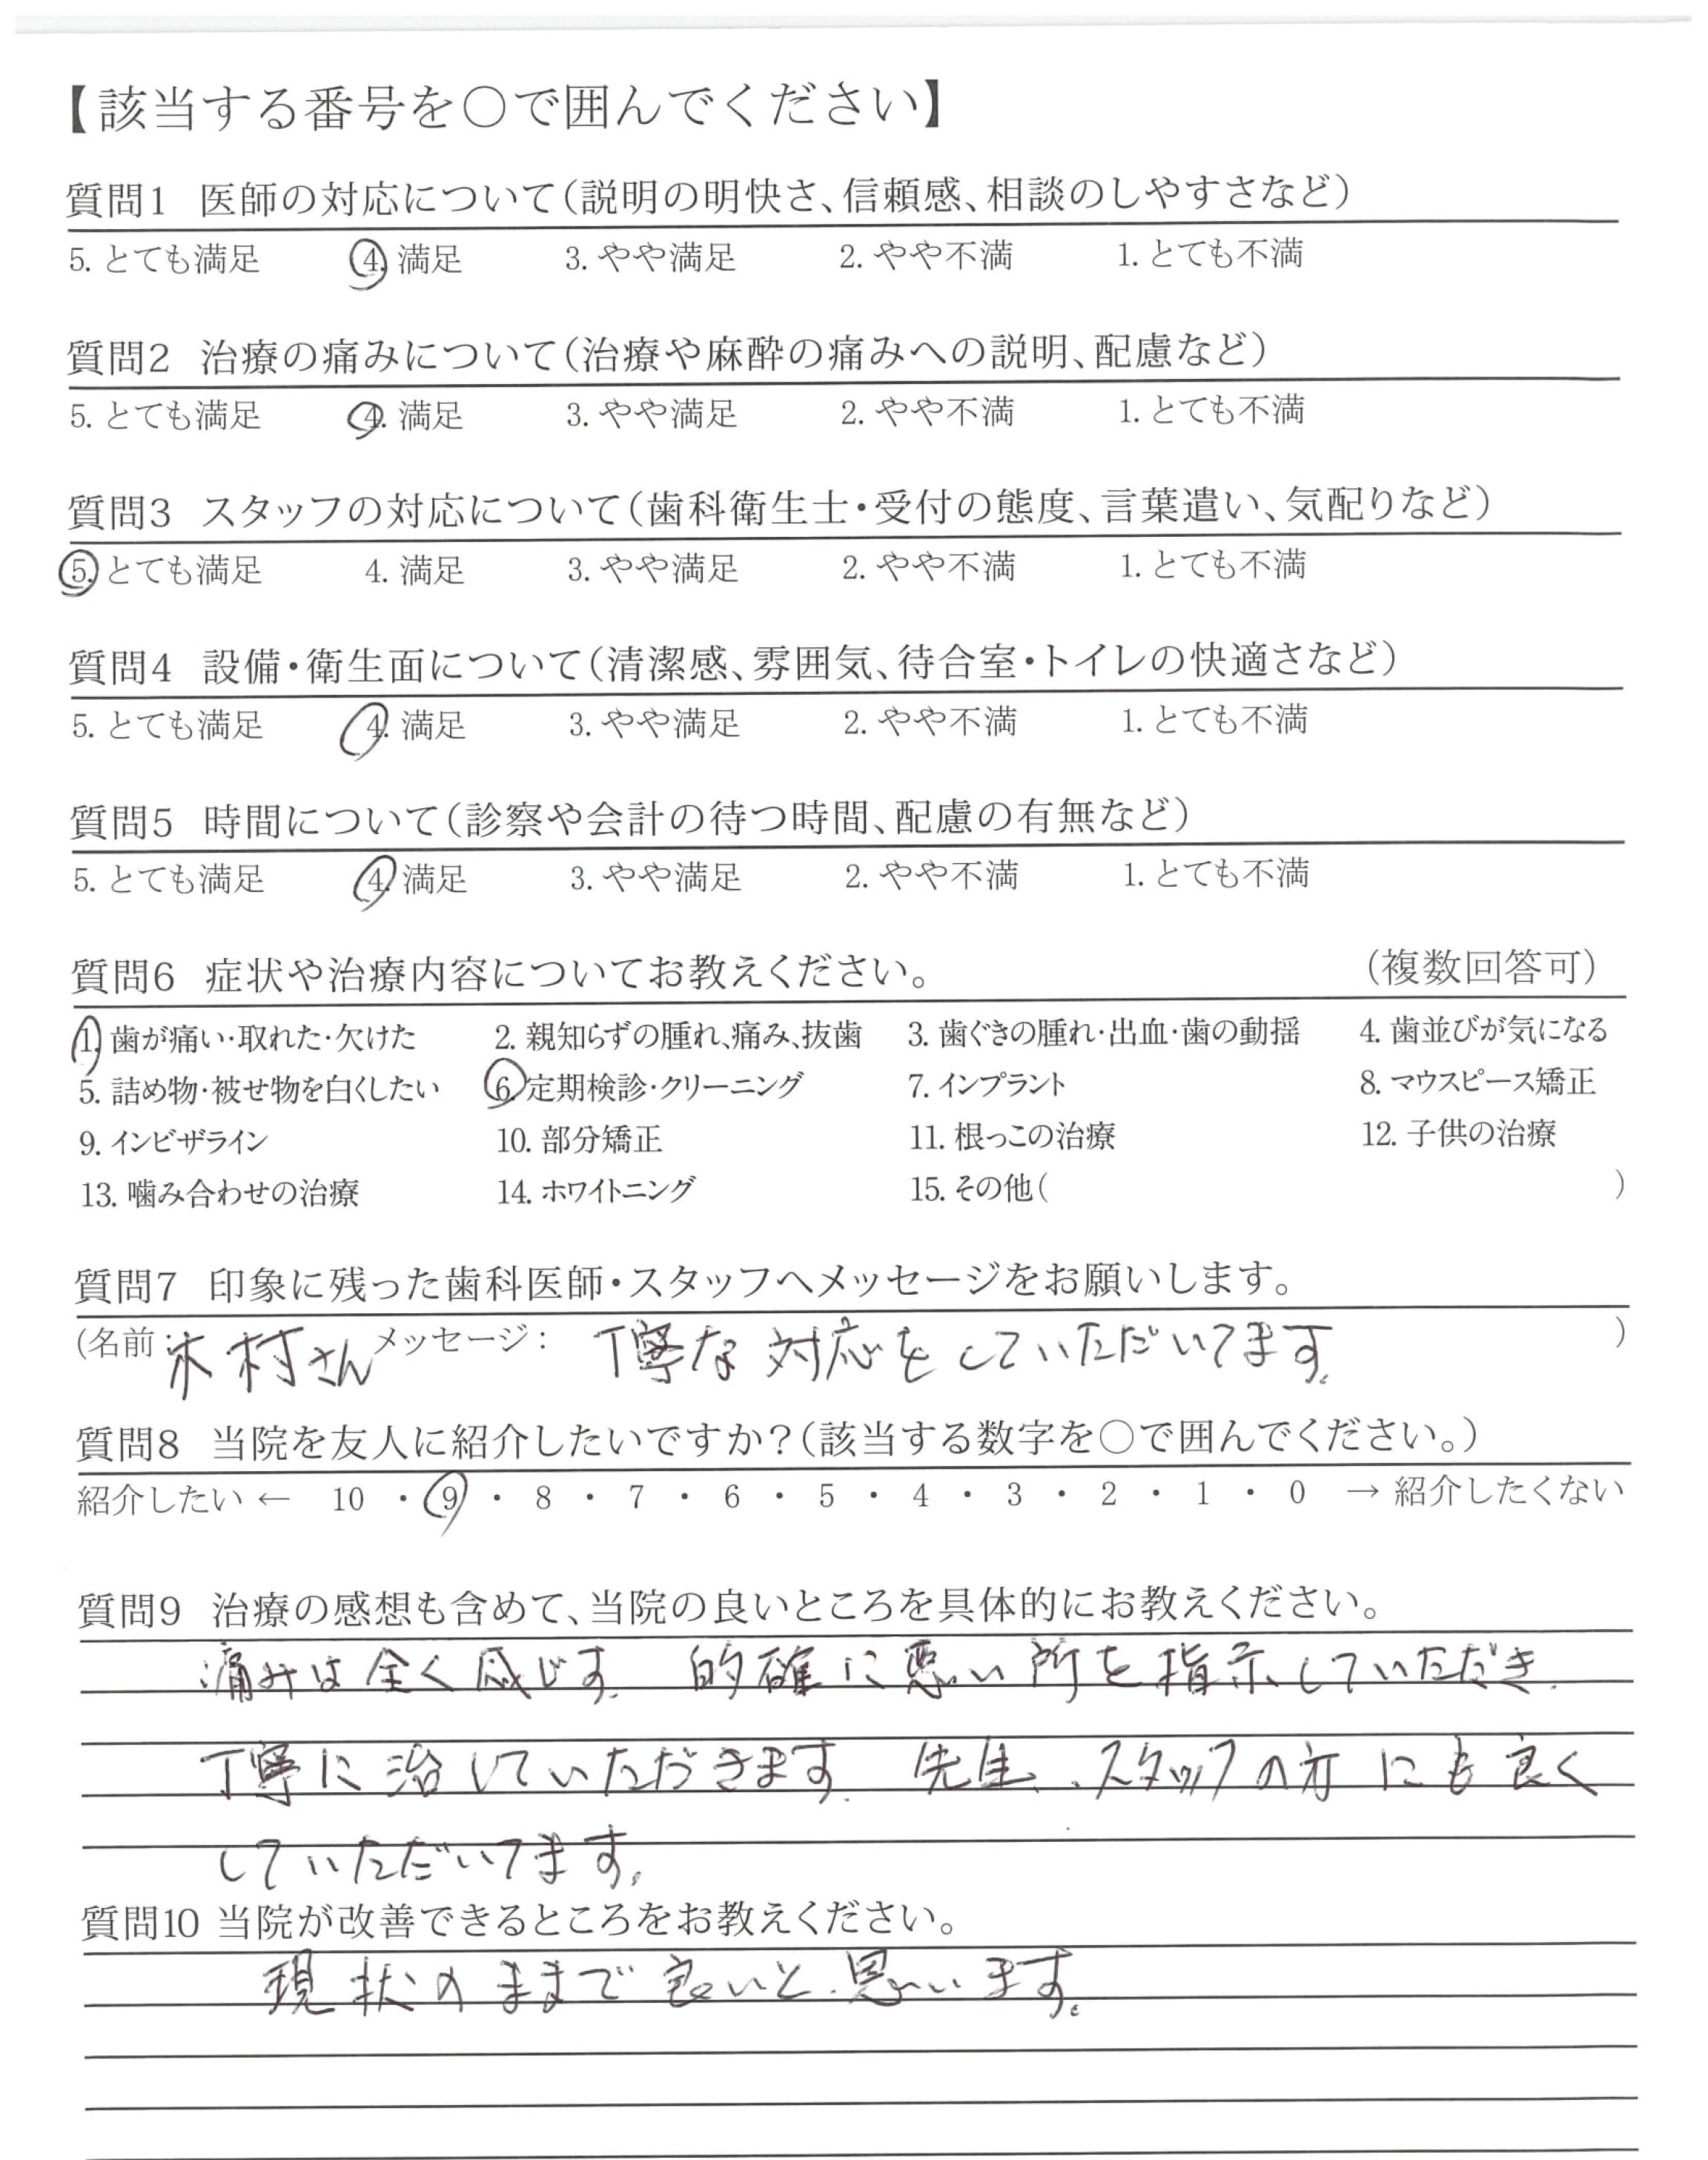 【該当する番号を○で囲んでください】
質問1 医師の対応について(説明の明快さ、信頼感、相談のしやすさなど)
5. とても満足 4. 満足 3. やや満足 2. やや不満 1. とても不満
質問2 治療の痛みについて(治療や麻酔の痛みへの説明、配慮など)
5. とても満足 4. 満足 3. やや満足 2. やや不満 1. とても不満
質問3 スタッフの対応について(歯科衛生士・受付の態度、言葉遣い、気配りなど)
5. とても満足 4. 満足 3. やや満足 2. やや不満 1. とても不満
質問4 設備・衛生面について(清潔感、雰囲気、待合室・トイレの快適さなど)
5. とても満足 4. 満足 3. やや満足 2. やや不満 1. とても不満
質問5 時間について(診察や会計の待つ時間、配慮の有無など)
5. とても満足 4. 満足 3. やや満足 2. やや不満 1. とても不満
質問6 症状や治療内容についてお教えください。 (複数回答可)
1. 歯が痛い・取れた・欠けた 2. 親知らずの腫れ、痛み、抜歯 3. 歯ぐきの腫れ・出血・歯の動揺 4. 歯並びが気になる
5. 詰め物・被せ物を白くしたい 6. 定期検診・クリーニング 7. インプラント 8. マウスピース矯正
9. インビザライン 10. 部分矯正 11. 根っこの治療 12. 子供の治療
13. 噛み合わせの治療 14. ホワイトニング 15. その他( )
質問7 印象に残った歯科医師・スタッフへメッセージをお願いします。
(名前:木村さん メッセージ: 丁寧な対応をしていただいてます。)
質問8 当院を友人に紹介したいですか?(該当する数字を○で囲んでください。)
紹介したい ← 10 ・ 9 ・ 8 ・ 7 ・ 6 ・ 5 ・ 4 ・ 3 ・ 2 ・ 1 ・ 0 → 紹介したくない
質問9 治療の感想も含めて、当院の良いところを具体的にお教えください。
痛みは全く感じず、的確に悪い所を指示していただき、
丁寧に治していただきます。先生、スタッフの方にも良く
していただいてます。
質問10 当院が改善できるところをお教えください。
現状のままで良いと思います。